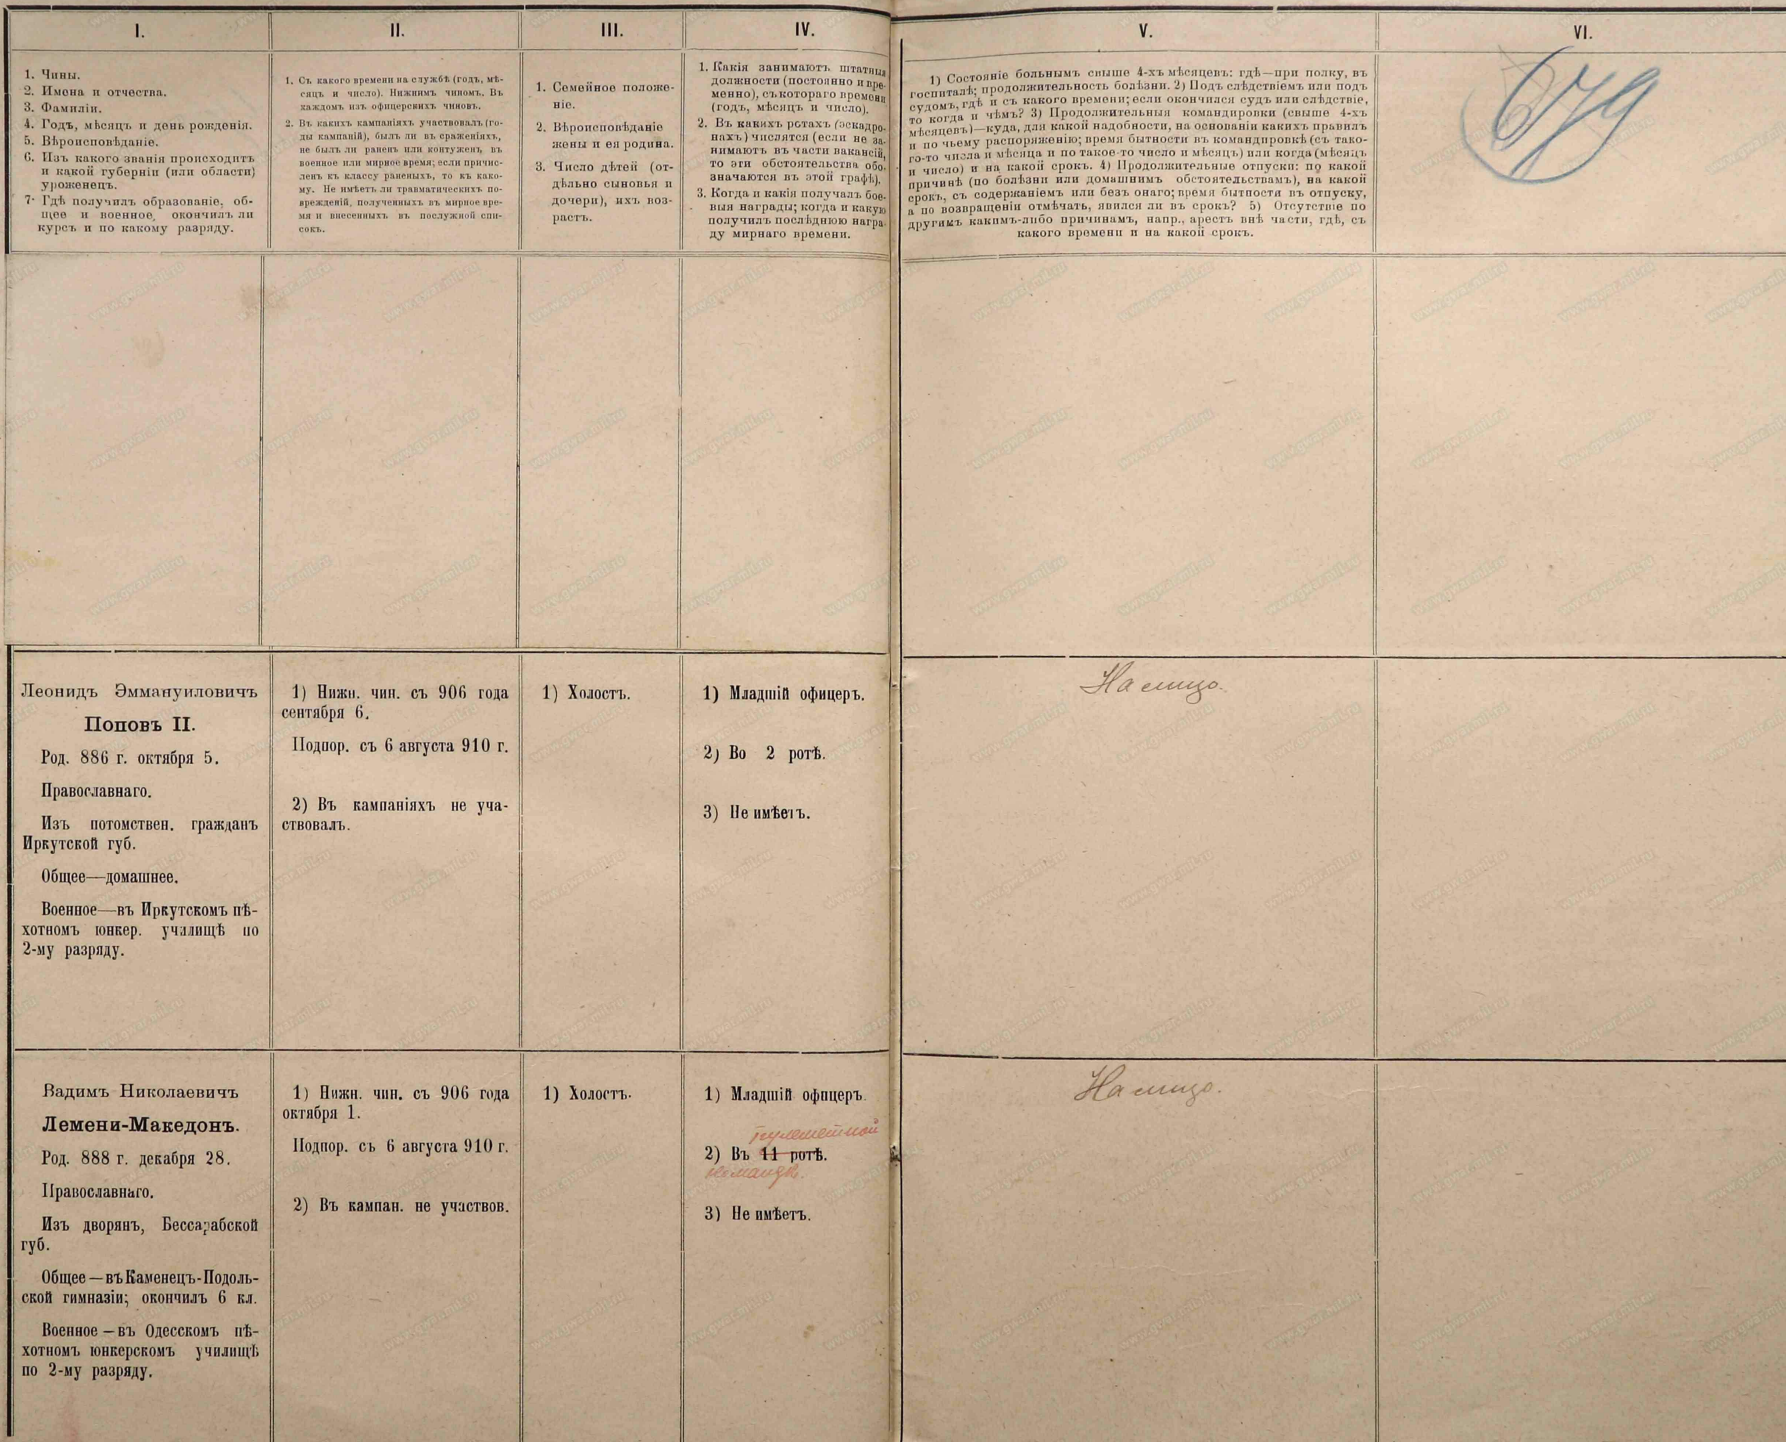 I.
II.
III.
IV.
V.
VI.
679
1. Чины.
2. Имена и отчества.
3. Фамиліи.
4. Годъ, мѣсяцъ и день рожденія.
5. Вѣроисповѣданіе.
6. Изъ какого званія происходитъ
и какой губерніи (или области)
уроженецъ.
7. Гдѣ получилъ образованіе, об-
щее и военное, окончилъ ли
курсъ и по какому разряду.
1. Съ какого времени на службѣ (годъ, мѣ-
сяцъ и число). Нижнимъ чиномъ. Въ
каждомъ изъ офицерскихъ чиновъ.
2. Въ какихъ кампаніяхъ участвовалъ (го-
ды кампаній), былъ ли въ сраженіяхъ,
не былъ ли раненъ или контуженъ въ
военное или мирное время; если причис-
ленъ къ классу раненыхъ, то къ како-
му. Не имѣетъ ли травматическихъ по-
врежденій, полученныхъ въ мирное вре-
мя и внесенныхъ въ послужной спи-
сокъ.
1. Семейное положе-
ніе.
2. Вѣроисповѣданіе
жены и ея родина.
3. Число дѣтей (от-
дѣльно сыновья и
дочери), ихъ воз-
растъ.
1. Какія занимаютъ штатныя
должности (постоянно и вре-
менно), съ котораго времени
(годъ, мѣсяцъ и число).
2. Въ какихъ ротахъ (эскадро-
нахъ) числятся (если не за-
нимаютъ въ части вакансій,
то эти обстоятельства обо-
значаются въ этой графѣ).
3. Когда и какія получалъ бое-
выя награды; когда и какую
получилъ послѣднюю награ-
ду мирнаго времени.
1) Состояніе больнымъ свыше 4-хъ мѣсяцевъ: гдѣ—при полку, въ
госпиталѣ; продолжительность болѣзни. 2) Подъ слѣдствіемъ или подъ
судомъ, гдѣ и съ какого времени; если окончился судъ или слѣдствіе,
то когда и чѣмъ? 3) Продолжительныя командировки (свыше 4-хъ
мѣсяцевъ)—куда, для какой надобности, на основаніи какихъ правилъ
и по чьему распоряженію; время бытности въ командировкѣ (съ тако-
го-то числа и мѣсяца и по такое-то число и мѣсяцъ) или когда (мѣсяцъ
и число) и на какой срокъ. 4) Продолжительные отпуски: по какой
причинѣ (по болѣзни или домашнимъ обстоятельствамъ), на какой
срокъ, съ содержаніемъ или безъ онаго; время бытности въ отпуску,
а по возвращеніи отмѣчать, явился ли въ срокъ? 5) Отсутствіе по
другимъ какимъ-либо причинамъ, напр., арестъ внѣ части, гдѣ, съ
какого времени и на какой срокъ.
Леонидъ Эммануиловичъ
Поповъ II.
Род. 886 г. октября 5.
Православнаго.
Изъ потомствен. гражданъ
Иркутской губ.
Общее—домашнее.
Военное—въ Иркутскомъ пѣ-
хотномъ юнкер. училищѣ по
2-му разряду.
1) Нижн. чин. съ 906 года
сентября 6.
Подпор. съ 6 августа 910 г.
2) Въ кампаніяхъ не уча-
ствовалъ.
1) Холостъ.
1) Младшій офицеръ.
2) Во 2 ротѣ.
3) Не имѣетъ.
На лицо.
Вадимъ Николаевичъ
Лемени-Македонъ.
Род. 888 г. декабря 28.
Православнаго.
Изъ дворянъ, Бессарабской
губ.
Общее—въ Каменецъ-Подоль-
ской гимназіи; окончилъ 6 кл.
Военное—въ Одесскомъ пѣ-
хотномъ юнкерскомъ училищѣ
по 2-му разряду.
1) Нижн. чин. съ 906 года
октября 1.
Подпор. съ 6 августа 910 г.
2) Въ кампан. не участвов.
1) Холостъ.
1) Младшій офицеръ.
пулеметной
2) Въ 11 ротѣ.
командѣ.
3) Не имѣетъ.
На лицо.
www.gwar.mil.ru